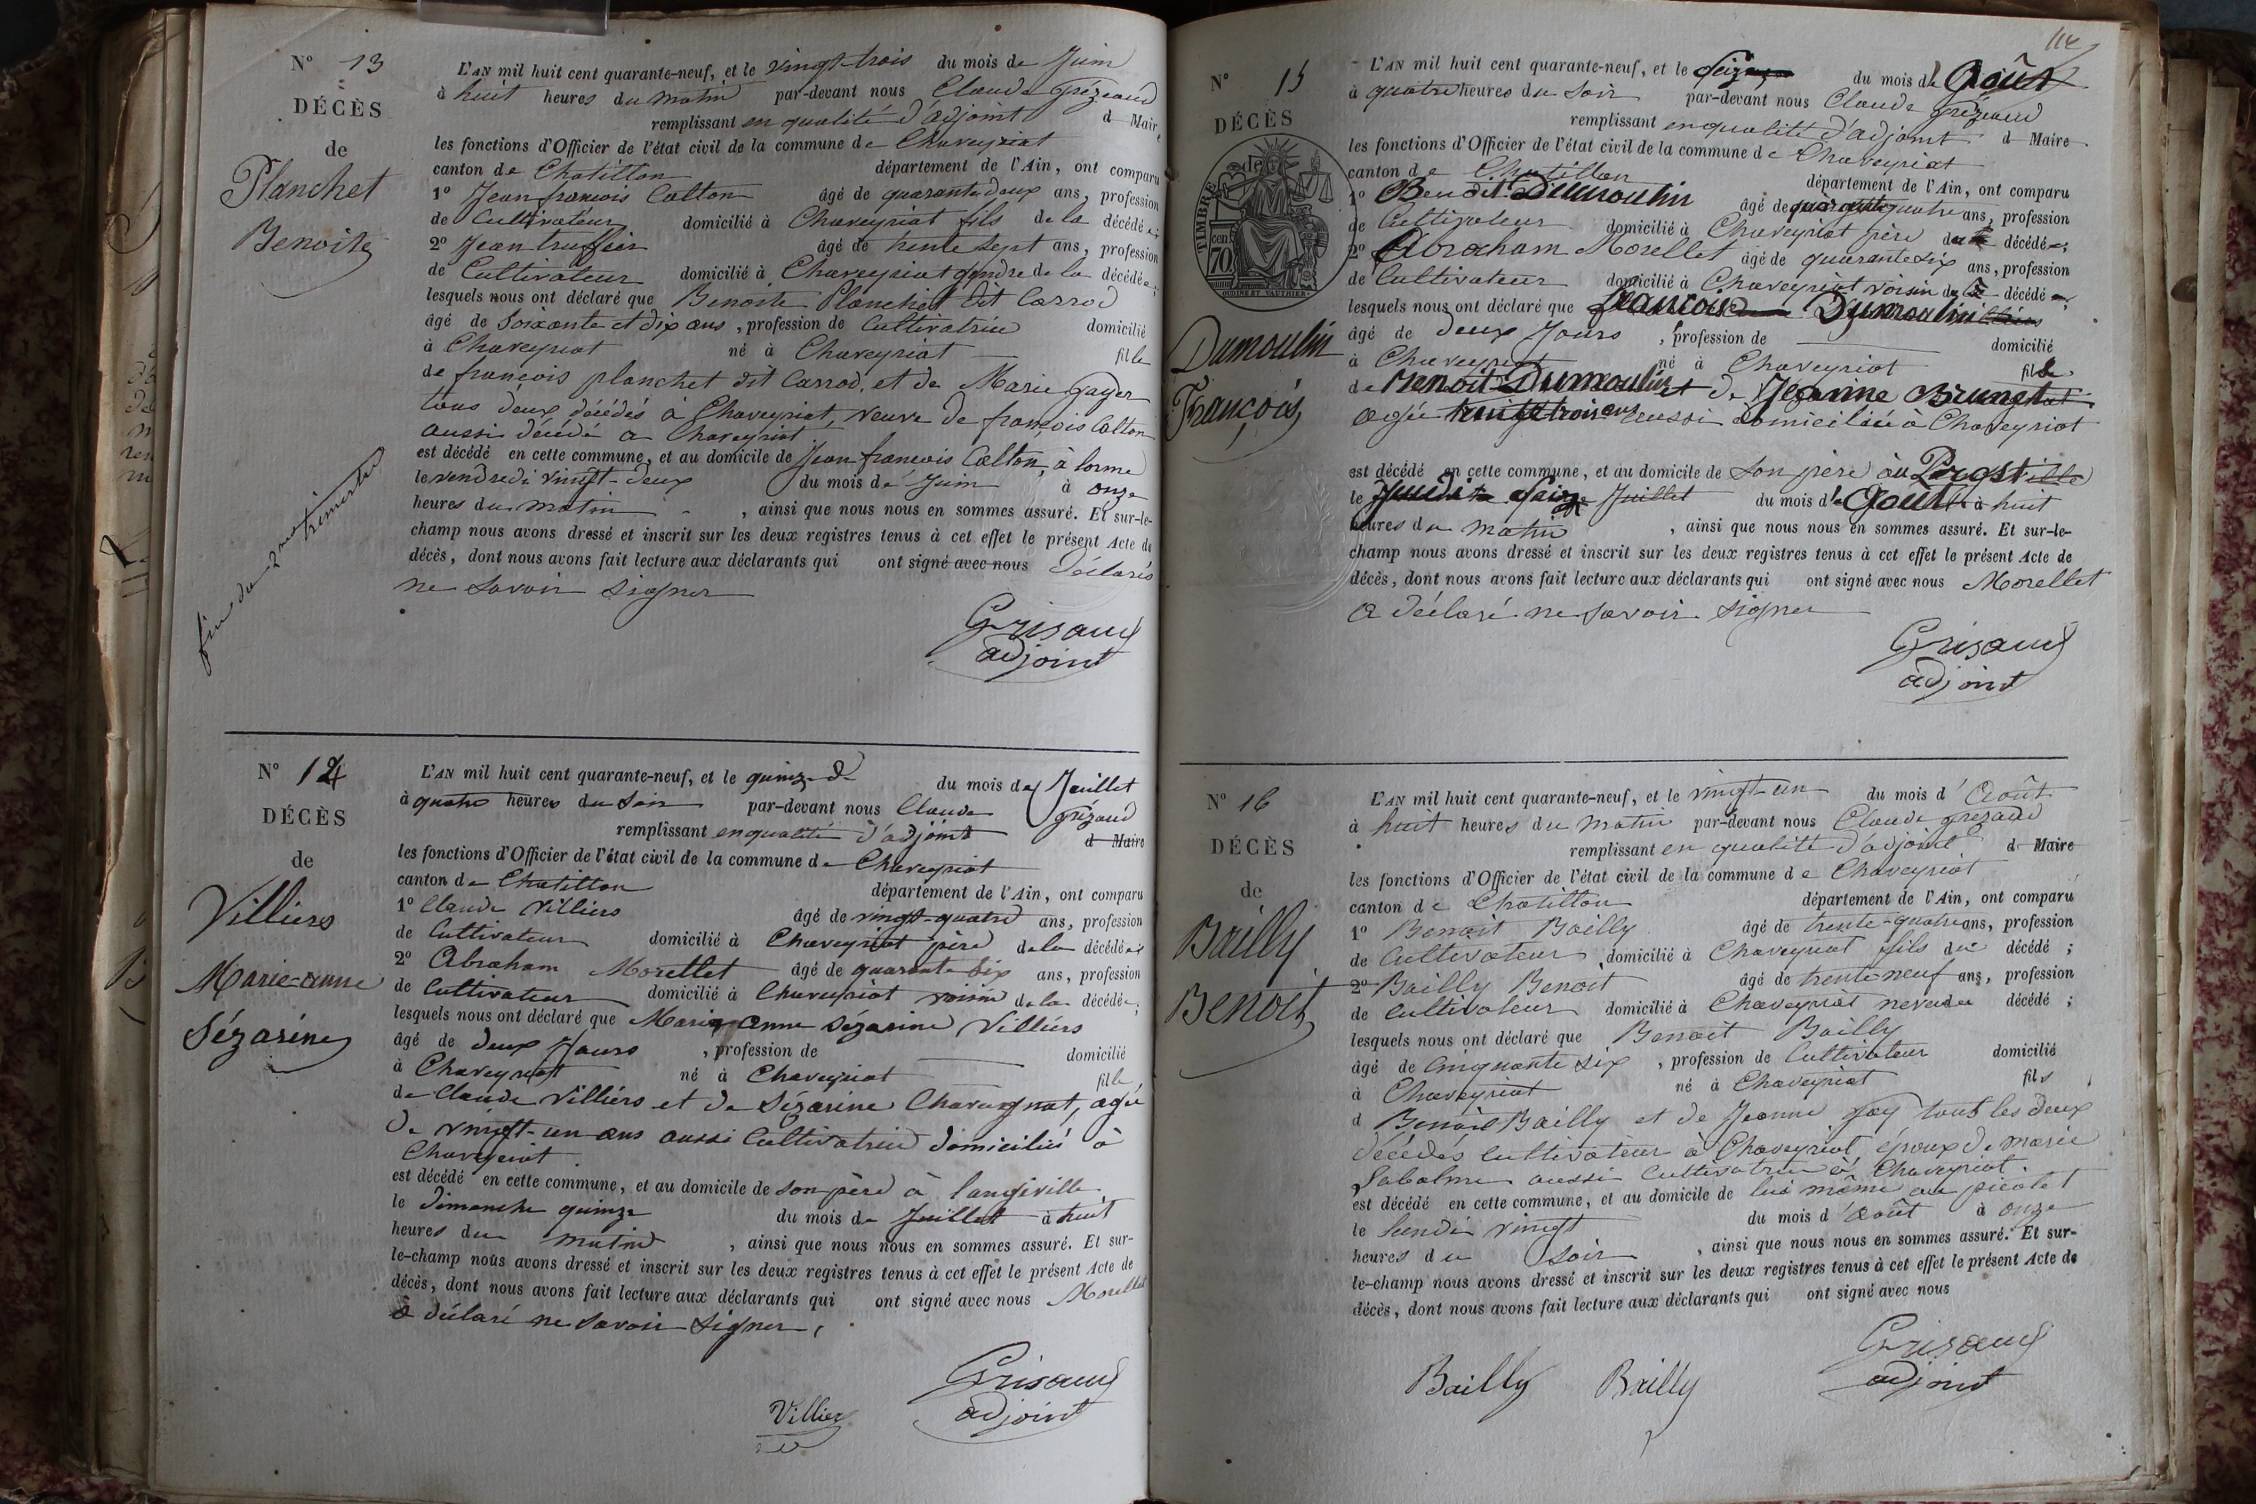 N° 13
DÉCÈS
de
Planchet
Benoite
fin du 2me trimestre
L'AN mil huit cent quarante-neuf, et le vingt-trois du mois de Juin
à huit heures du matin par-devant nous Claude Grézaud
remplissant en qualité d'adjoint d Maire
les fonctions d'Officier de l'état civil de la commune de Chaveyriat
canton de Chatillon département de l'Ain, ont comparu
1° Jean françois Catton âgé de quarante deux ans, profession
de Cultivateur domicilié à Chaveyriat fils de la décédée;
2° Jean truffier âgé de trente sept ans, profession
de Cultivateur domicilié à Chaveyriat gendre de la décédée;
lesquels nous ont déclaré que Benoite Planchet dit Carrod
âgé de Soixante et dix ans, profession de Cultivatrice domicilié
à Chaveyriat né à Chaveyriat fille
de françois planchet dit Carrod, et de Marie
tous deux décédés à Chaveyriat, veuve de françois Catton
aussi décédé a Chaveyriat
est décédé en cette commune, et au domicile de Jean françois Catton, à lorme
le vendredi vingt-deux du mois de Juin à onze
heures du matin, ainsi que nous nous en sommes assuré. Et sur-le-
champ nous avons dressé et inscrit sur les deux registres tenus à cet effet le présent Acte de
décès, dont nous avons fait lecture aux déclarants qui ont signé avec nous déclarés
ne Savoir Signer
Grisaud
adjoint
N° 14
DÉCÈS
de
Villiers
Marie-anne
Sézarine
L'AN mil huit cent quarante-neuf, et le quinze du mois de Juillet
à quatre heures du Soir par-devant nous Claude Grézaud
remplissant en qualité d'adjoint d Maire
les fonctions d'Officier de l'état civil de la commune de Chaveyriat
canton de Chatillon département de l'Ain, ont comparu
1° Claude Villiers âgé de vingt-quatre ans, profession
de Cultivateur domicilié à Chaveyriat père de la décédée
2° Abraham Morellet âgé de quarante Six ans, profession
de Cultivateur domicilié à Chaveyriat voisin de la décédée;
lesquels nous ont déclaré que Marie anne Sézarine Villiérs
âgé de deux Jours, profession de domicilié
à Chaveyriat né à Chaveyriat fille
de Claude Villiérs et de Sézarine, agée
de vingt-un ans aussi Cultivatrice domiciliée à
Chaveyriat
est décédé en cette commune, et au domicile de son père à langiville
le Dimanche quinze du mois de Juillet à huit
heures du matin, ainsi que nous nous en sommes assuré. Et sur-
le-champ nous avons dressé et inscrit sur les deux registres tenus à cet effet le présent Acte de
décès, dont nous avons fait lecture aux déclarants qui ont signé avec nous Morellet
a déclaré ne Savoir Signer,
Villier
Grisaud
adjoint
114
N° 15
DÉCÈS
TIMBRE
70
Dumoulin
François
L'AN mil huit cent quarante-neuf, et le Seize du mois de Août
à quatre heures du Soir par-devant nous Claude Grézaud
remplissant en qualité d'adjoint d Maire
les fonctions d'Officier de l'état civil de la commune de Chaveyriat
canton de Chatillon département de l'Ain, ont comparu
1° Benoit Dumoulin âgé de quarante quatre ans, profession
de Cultivateur domicilié à Chaveyriat père du décédé;
2° Abraham Morellet âgé de quarante six ans, profession
de Cultivateur domicilié à Chaveyriat voisin de décédé
lesquels nous ont déclaré que françois Dumoulin
âgé de deux Jours, profession de domicilié
à Chaveyriat né à Chaveyriat fils
de Benoit Dumoulin et de Jeanne Brunet
agée trente trois ans aussi domiciliée à Chaveyriat
est décédé en cette commune, et au domicile de Son père au
le Jeudi Seize Juillet du mois d'Août à huit
heures du matin, ainsi que nous nous en sommes assuré. Et sur-le-
champ nous avons dressé et inscrit sur les deux registres tenus à cet effet le présent Acte de
décès, dont nous avons fait lecture aux déclarants qui ont signé avec nous Morellet
a déclaré ne savoir signer
Grisaud
adjoint
N° 16
DÉCÈS
de
Bailly
Benoit
L'AN mil huit cent quarante-neuf, et le vingt-un du mois d'Août
à huit heures du matin par-devant nous Claude grezaud
remplissant en qualité d'adjoint d Maire
les fonctions d'Officier de l'état civil de la commune de Chaveyriat
canton de Chatillon département de l'Ain, ont comparu
1° Benoit Bailly âgé de trente-quatre ans, profession
de Cultivateur domicilié à Chaveyriat fils du décédé;
2° Bailly Benoit âgé de trente neuf ans, profession
de Cultivateur domicilié à Chaveyriat neveu du décédé;
lesquels nous ont déclaré que Benoit Bailly
âgé de cinquante six, profession de Cultivateur domicilié
à Chaveyriat né à Chaveyriat fils
d Benoit Bailly et de Jeanne gay tout les deux
décédés cultivateur à Chaveyriat, époux de marie
aussi cultivatrice à Chaveyriat.
est décédé en cette commune, et au domicile de lui même au picolet
le Lundi vingt du mois d'août à onze
heures du soir, ainsi que nous nous en sommes assuré. Et sur-
le-champ nous avons dressé et inscrit sur les deux registres tenus à cet effet le présent Acte de
décès, dont nous avons fait lecture aux déclarants qui ont signé avec nous
Bailly Bailly
Grisaud
adjoint